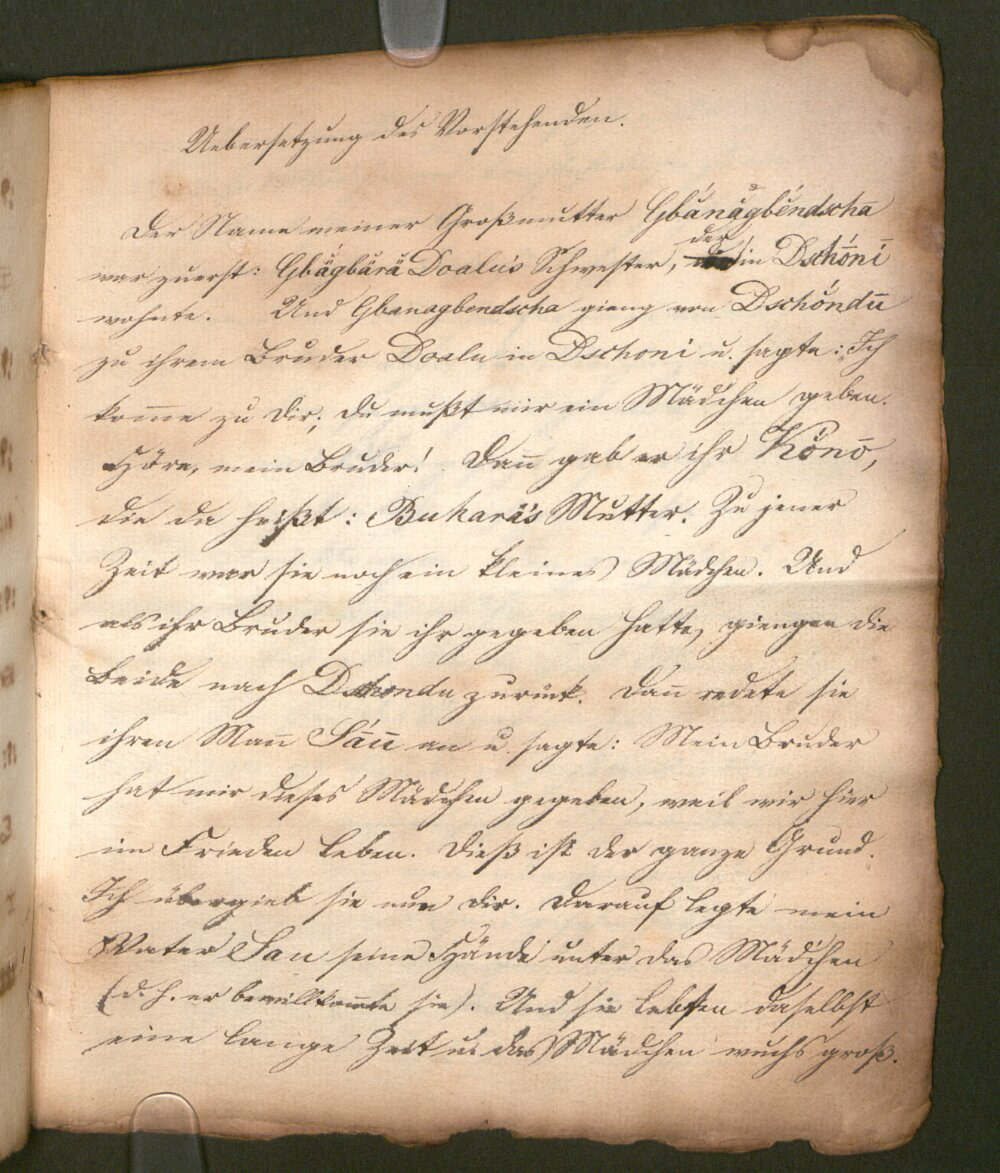 Uebersetzung des Vorstehenden.
Der Name meiner Großmutter Gbánāgbĕndscha
war zuerst: Gbāgbārā Doalu's Schwester, der in Dschōnī
wohnte. Und Gbanagbendscha gieng von Dschóndū
zu ihrem Bruder Doalu in Dschoni u. sagte: „Ich
kom̄e zu dir; du mußt mir ein Mädchen geben.
Höre, mein Bruder! Dan̄ gab er ihr Kónō,
die da heißt: Buharā's Mutter. Zu jener
Zeit war sie noch ein kleines Mädchen. Und
als ihr Bruder sie ihr gegeben hatte, giengen die
beide nach Dschondu zurück. Dan̄ redete sie
ihren Man̄ Sáū an u. sagte: Mein Bruder
hat mir dieses Mädchen gegeben, weil wir hier
im Frieden leben. Dieß ist der ganze Grund.
Ich übergieb sie nun dir. Darauf legte mein
Vater Sau seine Hände unter das Mädchen
(d. h. er bewillkom̄te sie). Und sie lebten daselbst
eine lange Zeit u. das Mädchen wuchs groß.